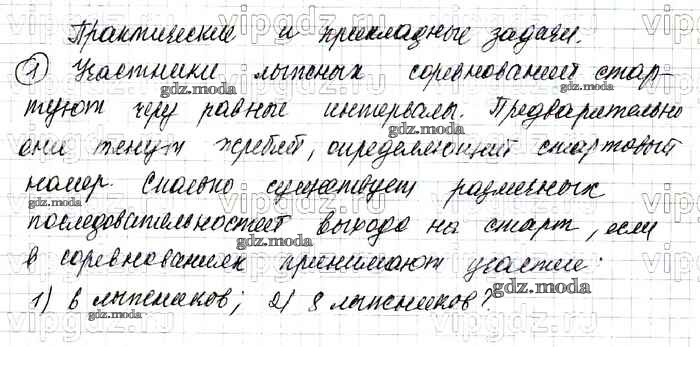 Практические и прикладные задачи.
1 Участники лыжных соревнований стар-
туют через равные интервалы. Предварительно
они тянут жребий, определяющий стартовый
номер. Сколько существует различных
последовательностей выхода на старт, если
в соревнованиях принимают участие:
1) 6 лыжников; 2) 8 лыжников?
vipgdz.ru
gdz.moda